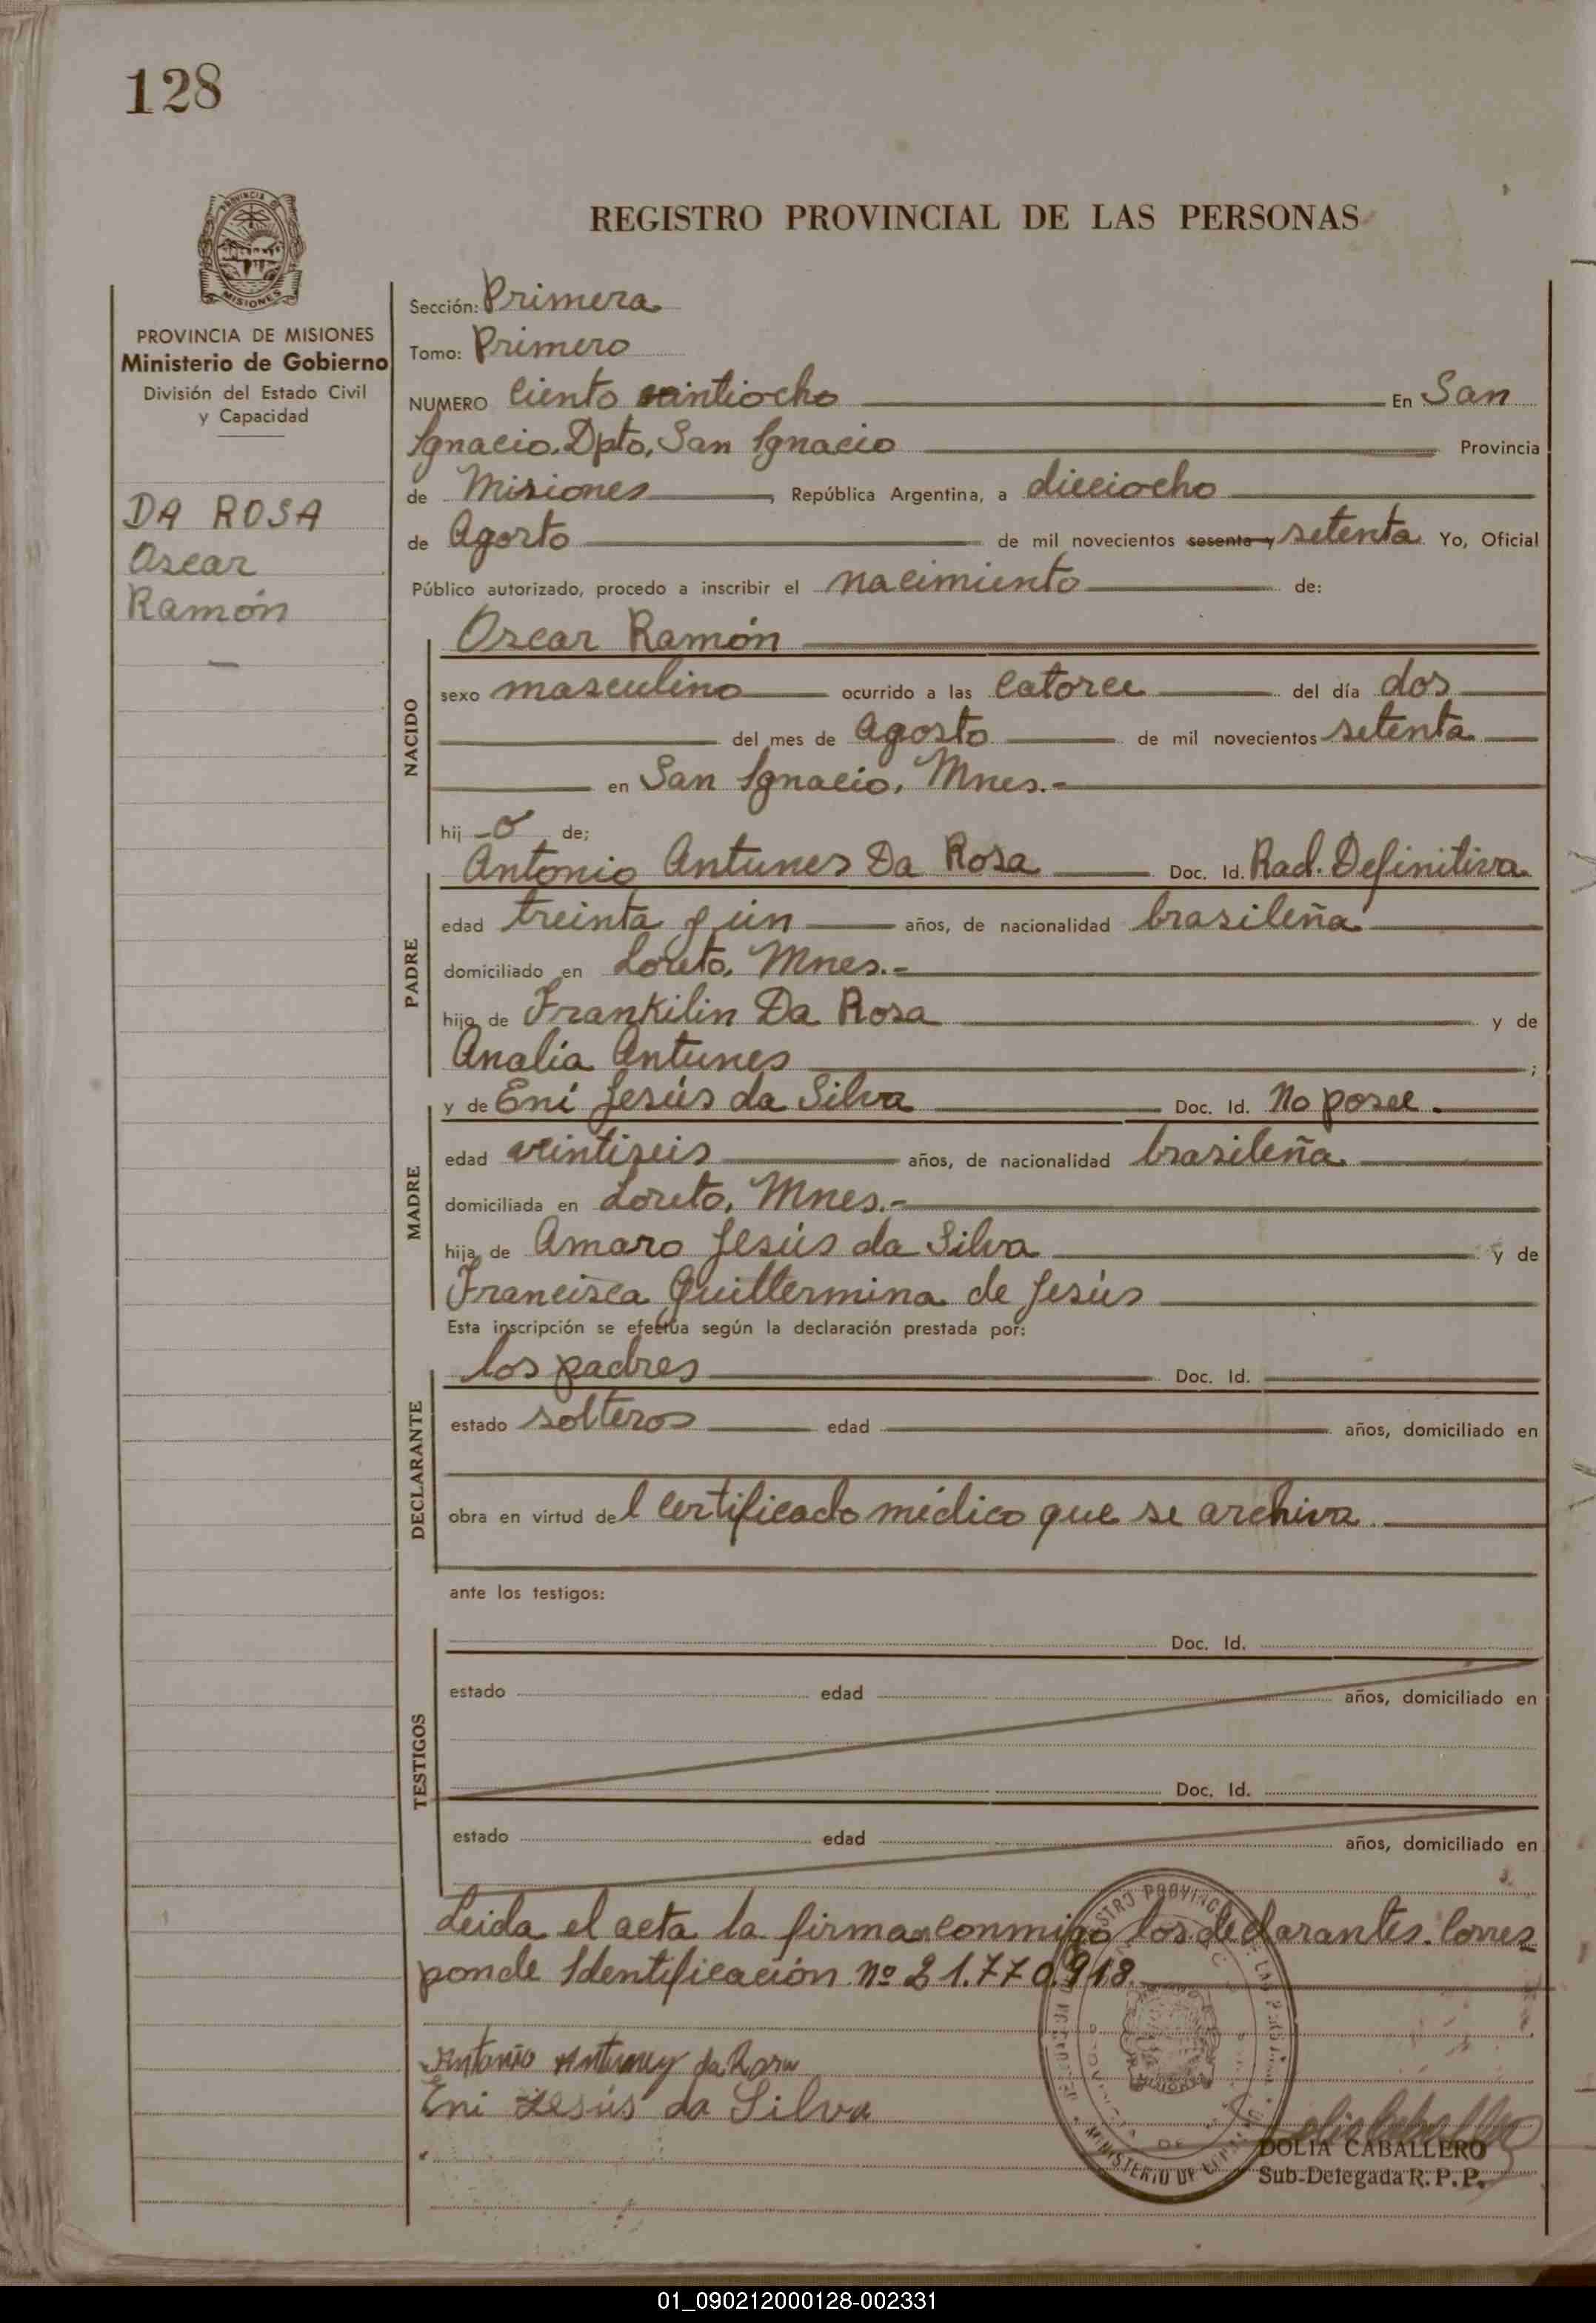 128
PROVINCIA DE
MISIONES
REGISTRO PROVINCIAL DE LAS PERSONAS
PROVINCIA DE MISIONES
Ministerio de Gobierno
División del Estado Civil
y Capacidad
DA ROSA
Oscar
Ramón
Sección: Primera
Tomo: Primero
NUMERO Ciento veintiocho En San
Ignacio. Dpto. San Ignacio Provincia
de Misiones, República Argentina, a dieciocho
de Agosto de mil novecientos sesenta y setenta Yo, Oficial
Público autorizado, procedo a inscribir el nacimiento de:
NACIDO
Oscar Ramón
sexo masculino ocurrido a las catorce del día dos
del mes de Agosto de mil novecientos setenta
en San Ignacio, Mnes.-
hij-o de;
PADRE
Antonio Antunes Da Rosa Doc. Id. Rad. Definitiva
edad treinta y ún años, de nacionalidad brasileña
domiciliado en Loreto, Mnes.-
hijo de Frankilin Da Rosa y de
Analía Antunes ;
MADRE
y de Eni Jesús da Silva Doc. Id. No posee.
edad veintiseis años, de nacionalidad brasileña
domiciliada en Loreto, Mnes.-
hija de Amaro Jesús da Silva y de
Francisca Guillermina de Jesús
Esta inscripción se efectúa según la declaración prestada por:
DECLARANTE
los padres Doc. Id.
estado solteros edad años, domiciliado en
obra en virtud del certificado médico que se archiva
ante los testigos:
TESTIGOS
Doc. Id.
estado edad años, domiciliado en
Doc. Id.
estado edad años, domiciliado en
Leida el acta la firman conmigo los declarantes. Corres
ponde Identificación nº 21.770.918.
Antonio Antunes da Rosa
Eni Jesús da Silva
DOLIA CABALLERO
Sub-Delegada R. P. P.
01_090212000128-002331